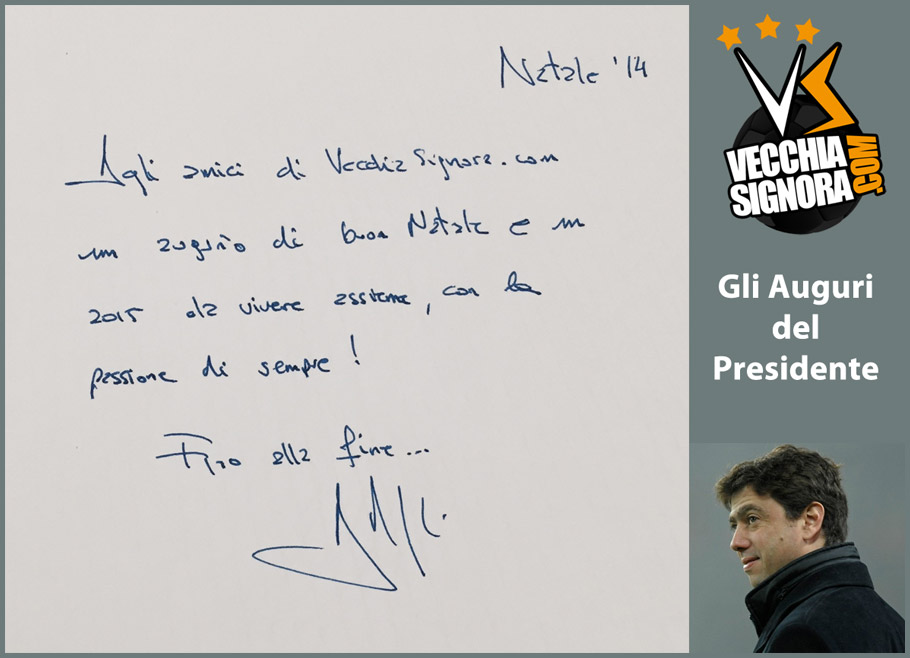 Natale '14
Agli amici di VecchiaSignora.com
un augurio di buon Natale e un
2015 da vivere assieme, con la
passione di sempre!
Fino alla fine...
VS
VECCHIA
SIGNORA
.COM
Gli Auguri
del
Presidente